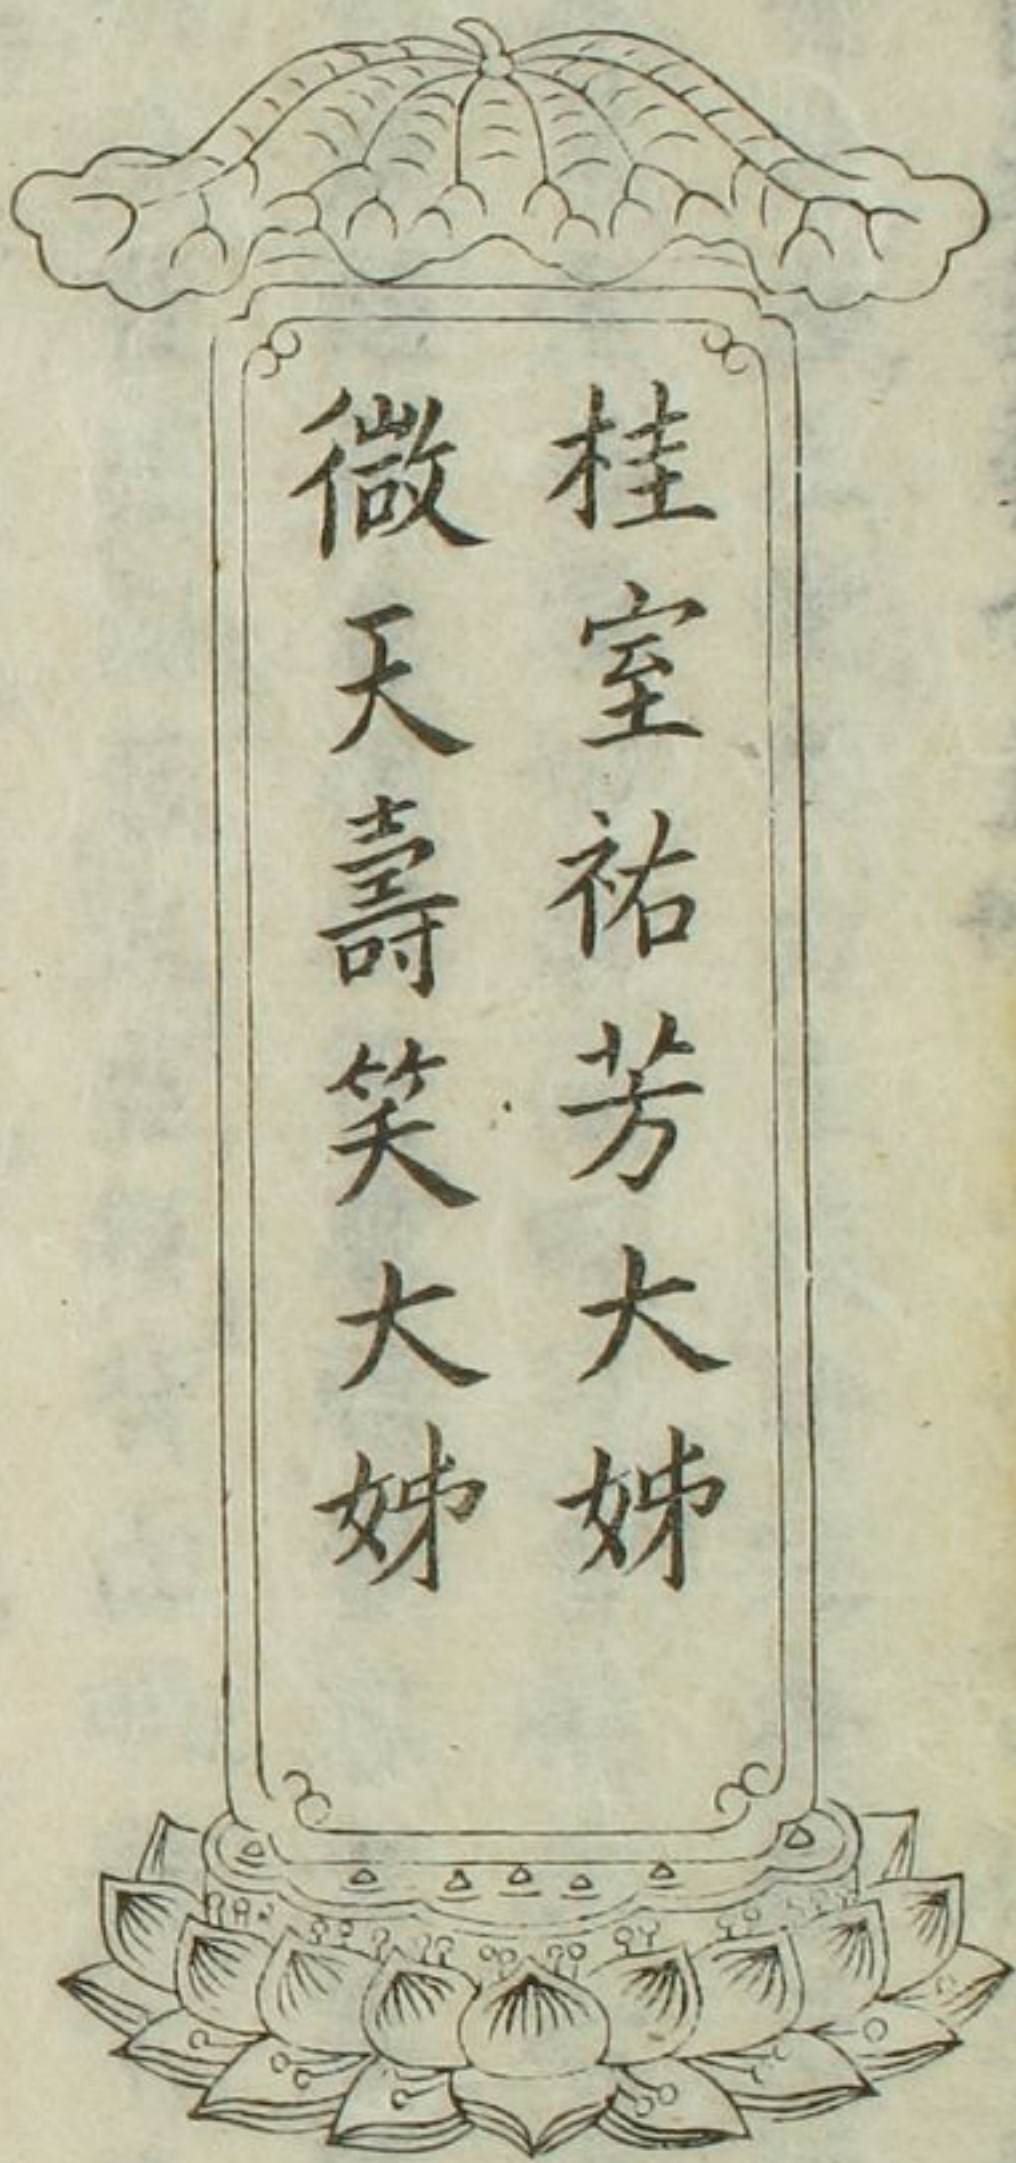 桂室祐芳大姊
微天壽笑大姊